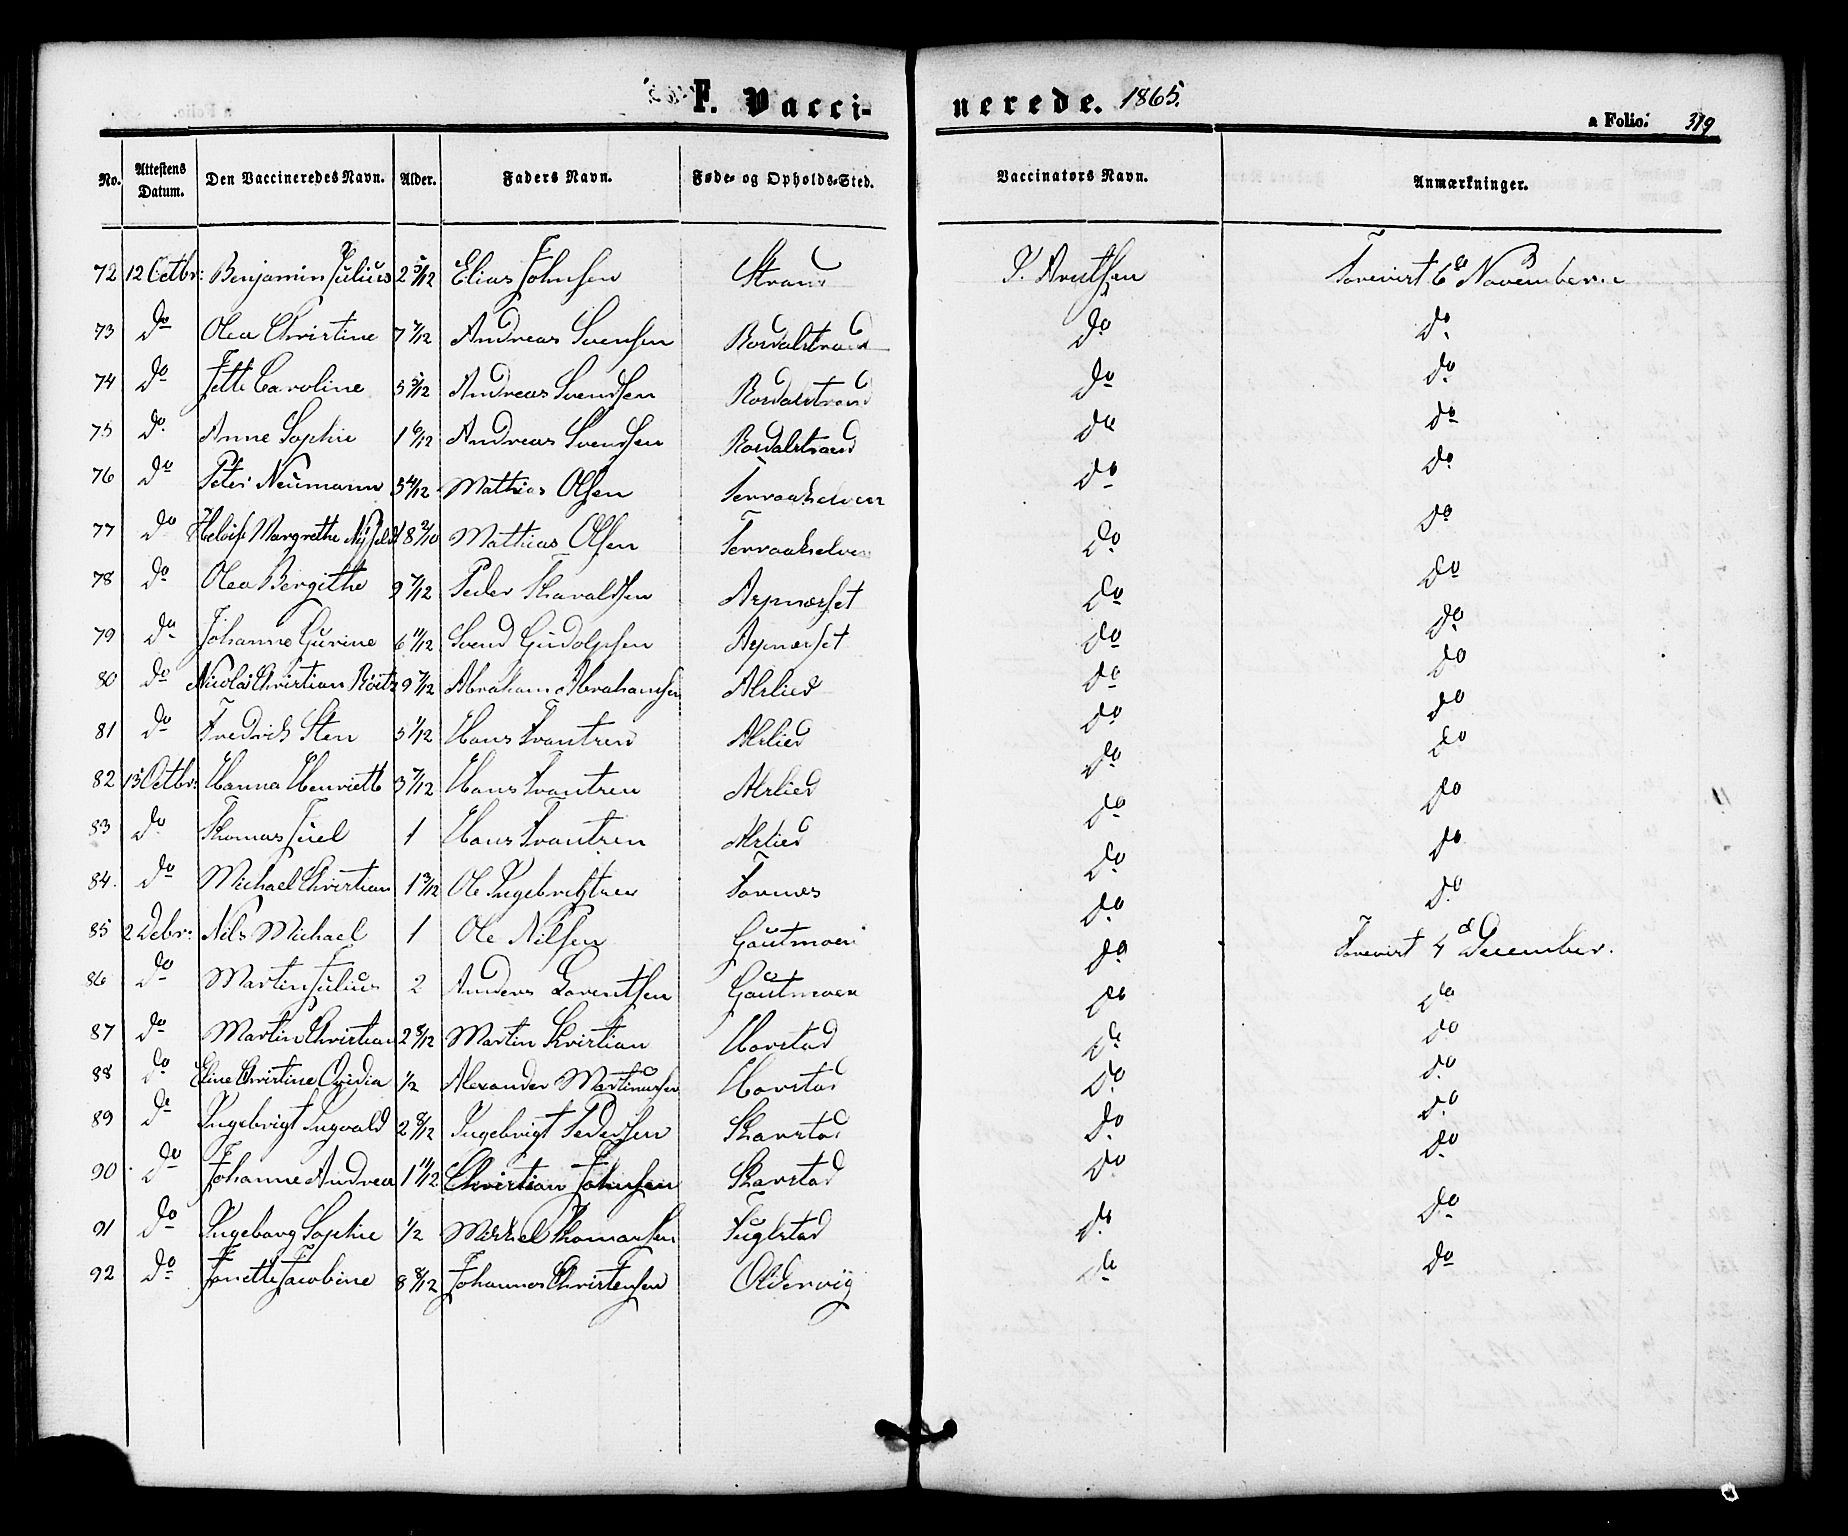 F. Vaccinerede. 1865.
a Folio. 319
No. Attestens Datum. Den Vaccineredes Navn. Alder. Faders Navn. Føde- og Opholds-Sted. Vaccinators Navn. Anmærkninger.
72 12 Octbr: Benjamin Julius 2 5/12 Elias Johnsen Strand Forevist 6 November
73 Do Olea Christine 7 7/12 Andreas Svensen do do
74 Do Jette Caroline 5 5/12 Andreas Svendsen do do
75 Do Anne Sophie 1 6/12 Andreas Svendsen do do
76 Do Peter Neumann Mathias Olsen do do
77 Do Margrethe Mathias Olsen do do
78 Do Olea Bergithe 9 7/12 Peder Tharaldsen do do
79 Do Johanne Gurine 6 11/12 Svend Gudolphsen do do
80 Do Nicolai Christian 9 7/12 Abraham Abrahamsen do do
81 Do Fredrik Sten 5 1/12 Hans Frantzen do do
82 13 Octbr: Hanna Henriette 3 7/12 Hans Frantzen do do
83 Do Thomas Juel 1 Hans Frantzen do do
84. Do Michael Christian 1 3/12 Ole Ingebrigtsen do do
85 2 Debr: Nils Michael 1 Ole Nilsen do Forevist 4 December.
86 Do Martin Julius 2 Anders Lorentsen do do
87 Do Martin Christian 2 8/12 Martin Christian Horstad do do
88 Do Eline Christine Ovidia 1/2 Alexander Martinussen Horstad do do
89 Do Ingebrigt Ingvald 2 8/12 Ingebrigt Pedersen Skarstad do do
90 Do Johanne Andrea 1 11/12 Christian Johnsen Skarstad do do
91 Do Ingeborg Sophie 1/2 Michel Thomassen Fuglstad do do
92 Do Jonette Jacobine 8 8/12 Johannes Christensen Oldervig do do